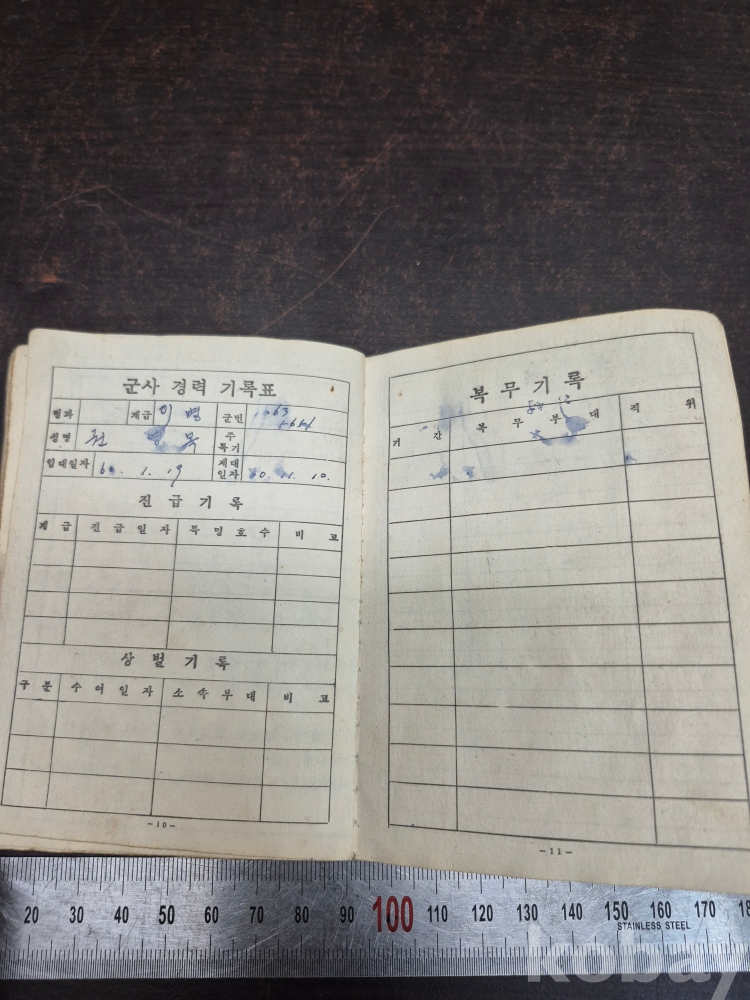 군사 경력 기록표
병과 계급 이병 군번
성명 권 영 목 주특기
입대일자 60. 1. 19 제대일자 60. 11. 10.
진급기록
계급 진급일자 특명호수 비고
상벌기록
구분 수여일자 소속부대 비고
-10-
복무기록
기간 복무부대 직위
-11-
20 30 40 50 60 70 80 90 100 110 120 130 140 150 160 170 18
STAINLESS STEEL
kobay